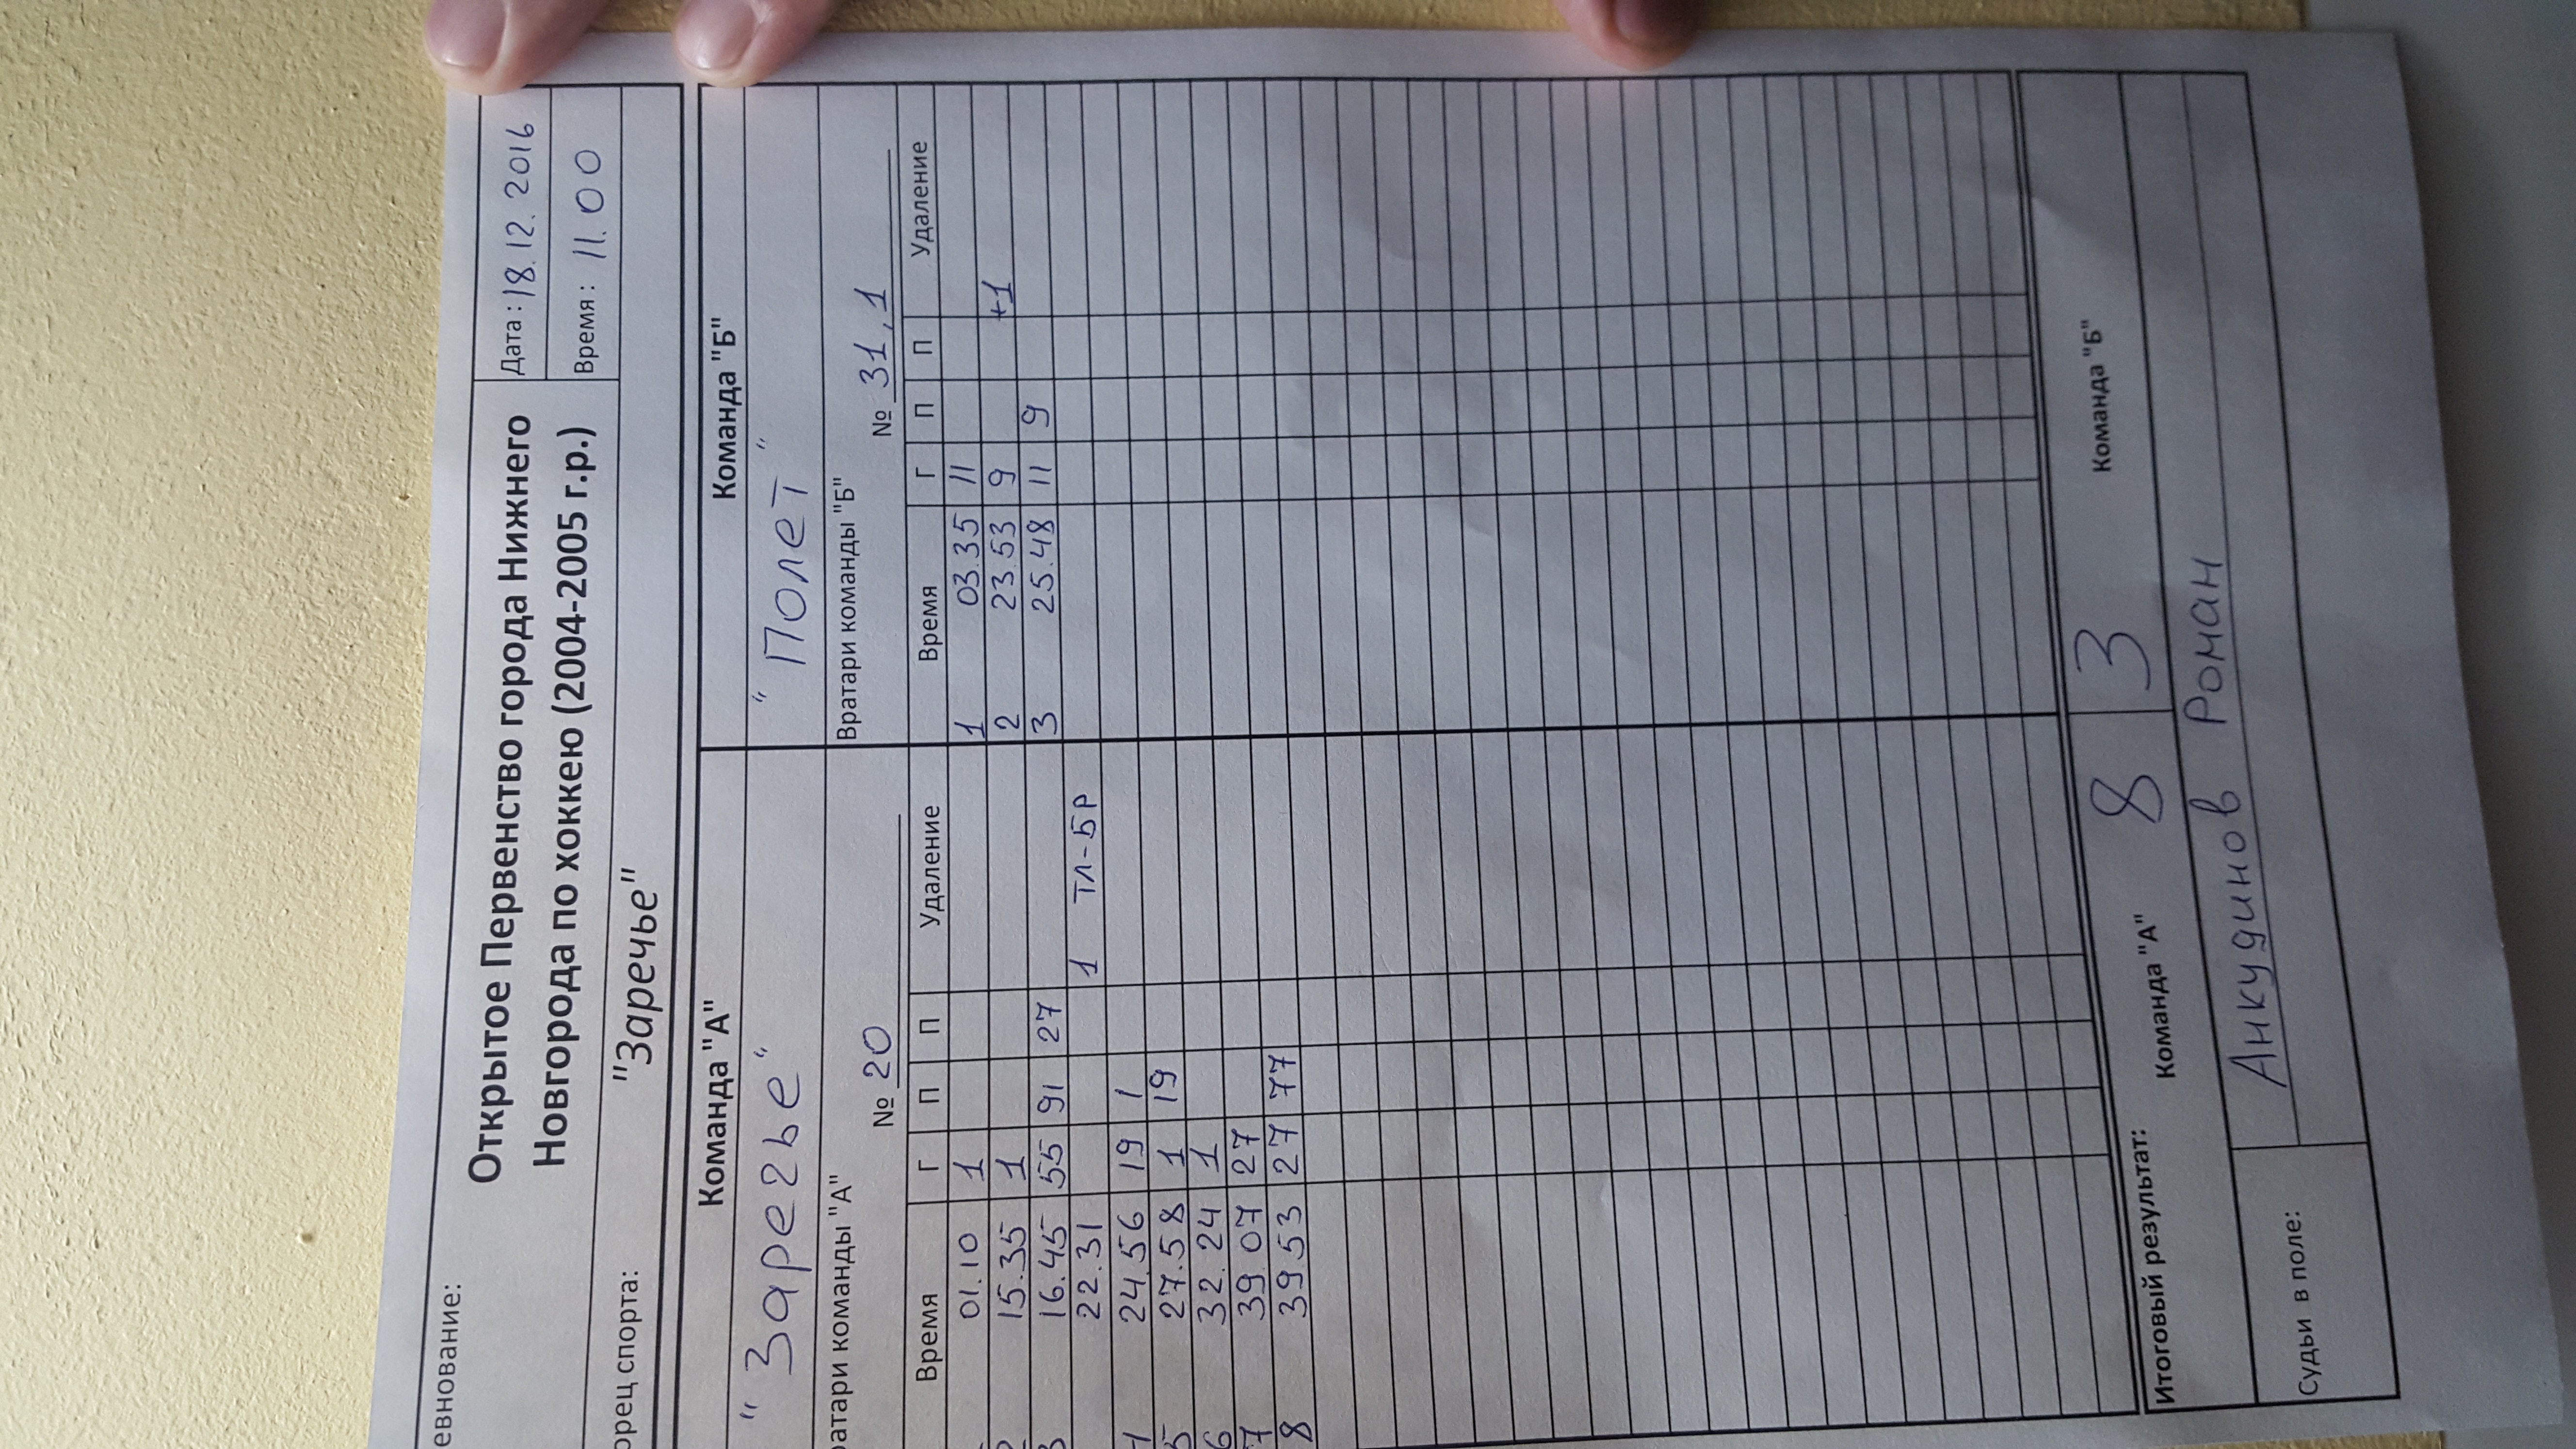 евнование:
Открытое Первенство города Нижнего
Новгорода по хоккею (2004-2005 г.р.)
Дата: 18.12.2016
Время: 11.00
орец спорта: "Заречье"
Команда "А" Команда "Б"
"Заречье" "Полет"
ратари команды "А" Вратари команды "Б"
№ 20 № 31,1
Время Г П П Удаление Время Г П П Удаление
01.10 1 1 03.35 11
15.35 1 2 23.53 9 +1
3 16.45 55 91 27 3 25.48 11 9
22.31 1 ТЛ-БР
24.56 19 1
5 27.58 1 19
6 32.24 1
7 39.07 27
8 39.53 27 77
Итоговый результат: Команда "А" 8 3 Команда "Б"
Судьи в поле: Анкудинов Роман